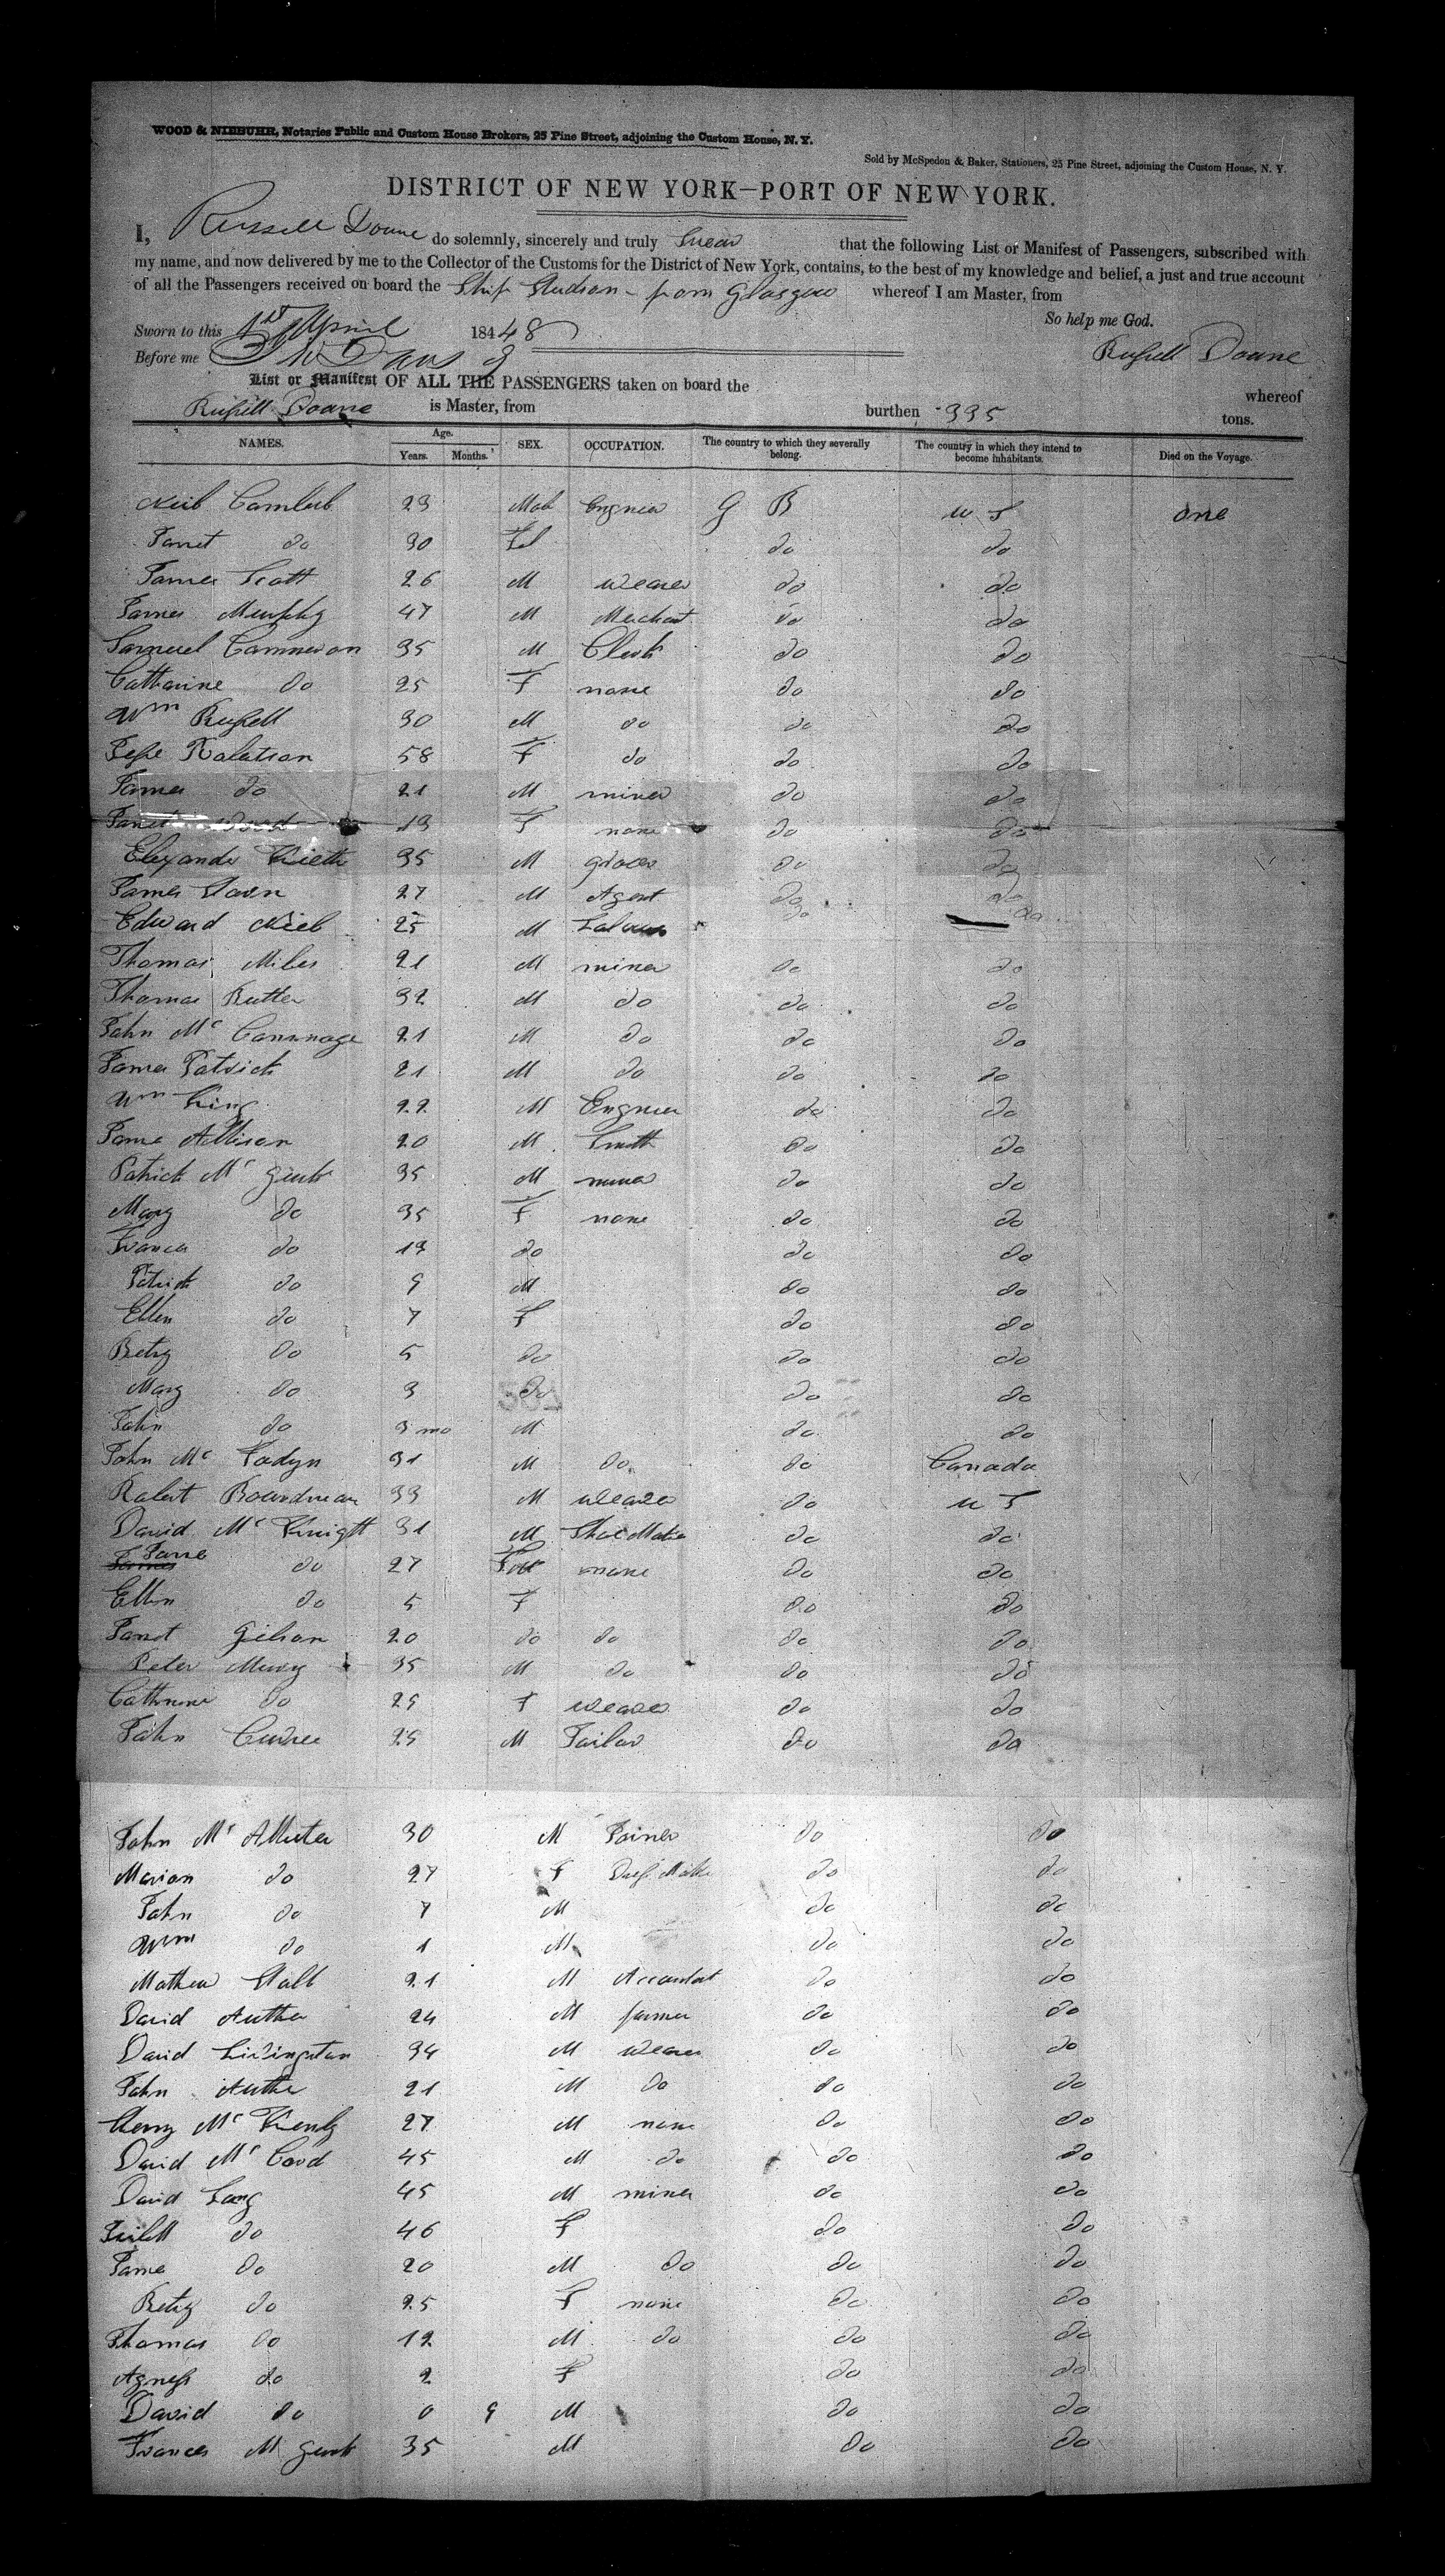 WOOD & NIEBUHR, Notaries Public and Custom House Brokers, 25 Pine Street, adjoining the Custom House, N. Y.
Sold by McSpedon & Baker, Stationers, 25 Pine Street, adjoining the Custom House, N. Y.
DISTRICT OF NEW YORK—PORT OF NEW YORK.
I, Russell Doane do solemnly, sincerely and truly Swear that the following List or Manifest of Passengers, subscribed with
my name, and now delivered by me to the Collector of the Customs for the District of New York, contains, to the best of my knowledge and belief, a just and true account
of all the Passengers received on board the Ship Hudson - from Glasgow whereof I am Master, from
So help me God.
Sworn to this 1st April 184 48
Before me Russell Doane
List or Manifest OF ALL THE PASSENGERS taken on board the whereof
Russell Doane is Master, from burthen 995 tons.
NAMES. Age. Years. Months. SEX. OCCUPATION. The country to which they severally belong. The country in which they intend to become inhabitants. Died on the Voyage.
Neil 29 Male Engneer G B U S one
Janet do 30 Fl do do
James Scott 26 M weaver do do
James Murphy 47 M Merchant do do
Samuel Cammeron 35 M Clerk do do
Catharine do 25 F none do do
Wm Russell 30 M do do do
Jesse Robertson 58 F do do do
James do 21 M miner do do
Janet Wood 19 F none do do
Elexander Kieth 35 M grocer do do
James 27 M Agent do do
Edward Niel 25 M do do
Thomas Miles 21 M miner do do
Thomas Butter 32 M do do do
John Mc Cammage 21 M do do do
James Patrick 21 M do do do
Wm King 22 M Engneer do do
Jame Allison 20 M Smith do do
Patrick Mc Gurk 35 M miner do do
Mary do 35 F none do do
Frances do 13 do do do
Patrick do 9 M do do
Ellen do 7 F do do
Betsy do 5 do do do
Mary do 3 do do do
John do 9 mo M do do
John Mc Fadyn 31 M do do Canada
Robert Boardman 33 M weaver do U S
David Mc Knight 31 M Shoe Maker do do
Jane do 27 F none do do
Ellin do 5 F do do
Janet Gibson 20 do do do do
Peter 35 M do do do
Cathrine do 25 F weaver do do
John Curree 25 M Tailor do do
John Mc Allister 30 M Joiner do do
Marion do 27 F Dress Maker do do
John do 7 M do do
Wm do 1 M do do
Mathew Hall 21 M Accountant do do
David Auther 24 M farmer do do
David Livingston 34 M weaver do do
John Auther 21 M do do do
Henry Mc 27 M none do do
David Mc Cord 45 M do do do
David Lang 45 M miner do do
do 46 F do do
Jame do 20 M do do do
Betsy do 25 F none do do
Thomas do 12 M do do do
Agness do 2 F do do
David do 0 9 M do do
Frances Mc Gurk 35 M do do